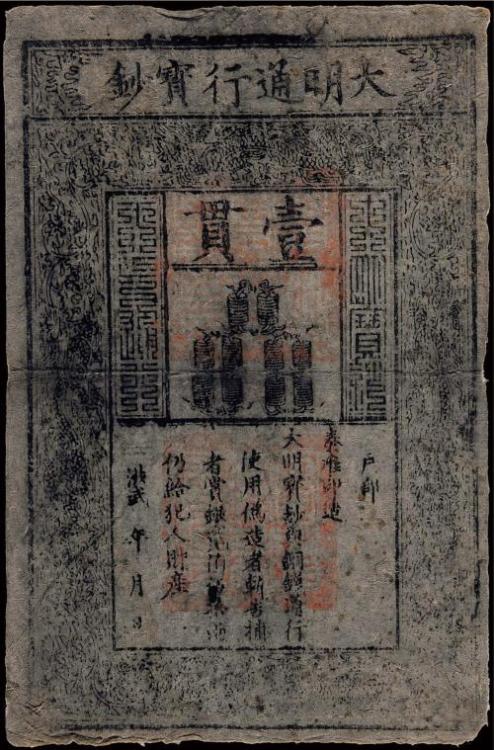 大明通行寶鈔
壹貫
大明寶鈔
天下通行
戶部
奏准印造
大明寶鈔與銅錢通行
使用偽造者斬告捕
者賞銀兩
仍給犯人財產
洪武 年 月 日